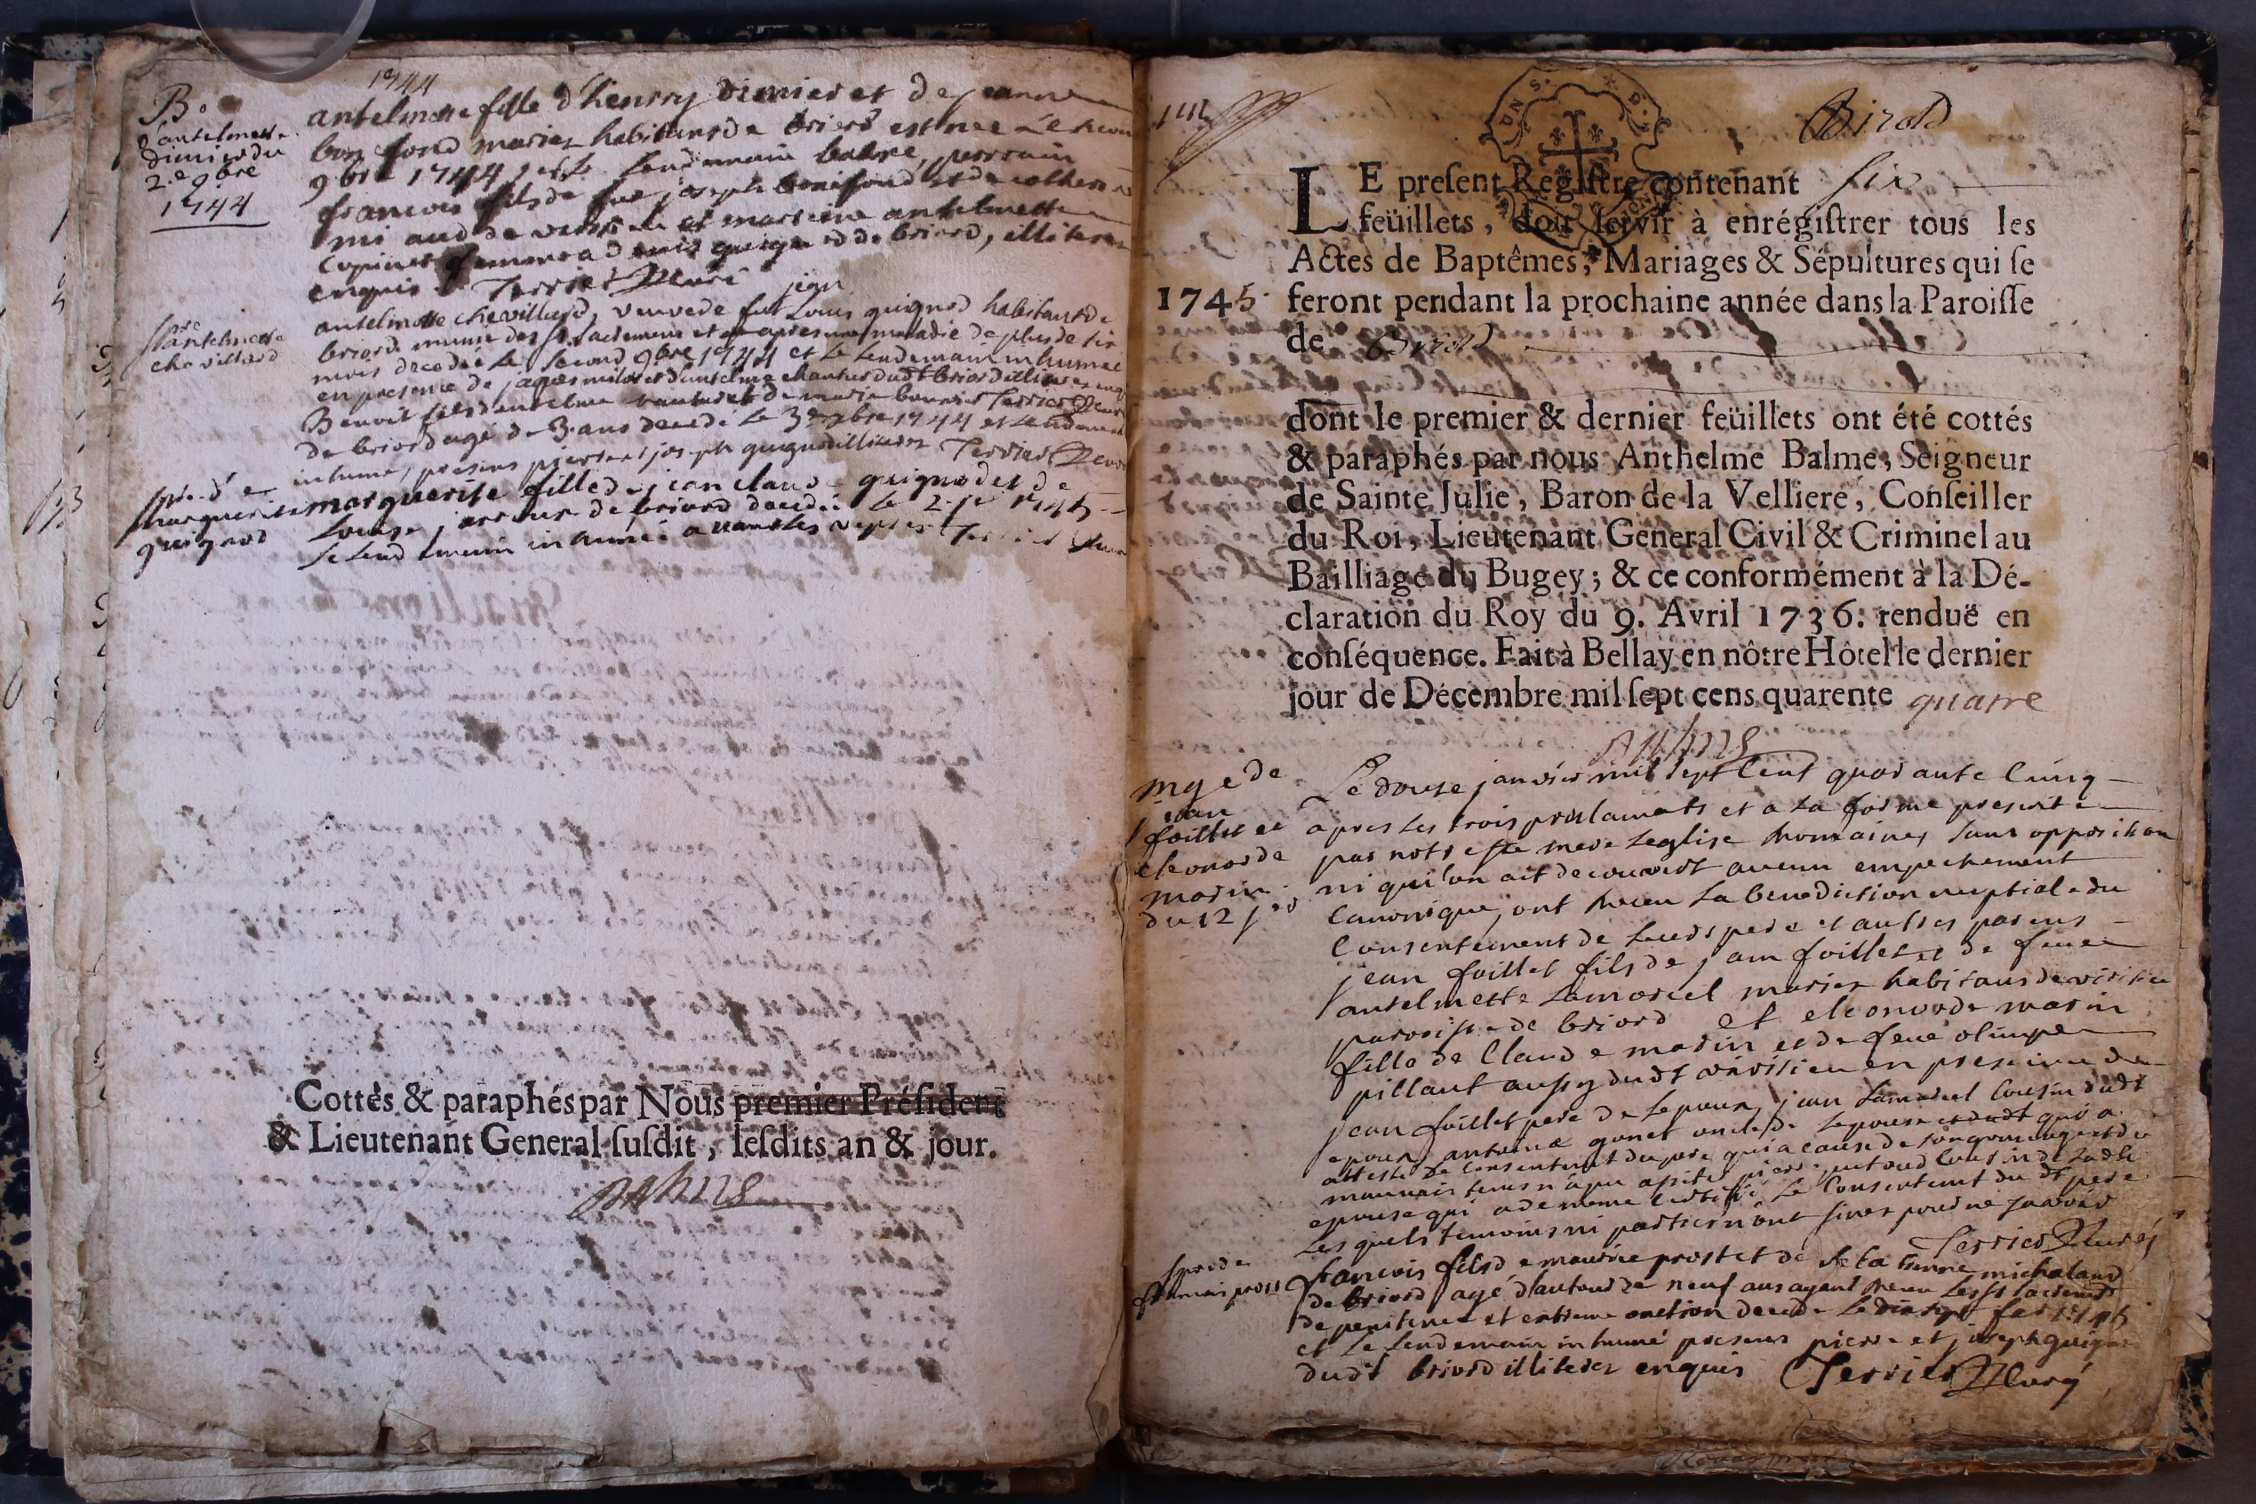 1744
B.
d'antelmette
dimier du
2.e 9bre
1744
antelmette fille d'henry dimier et de jeanne
bon fond mariez habitans de briord est née le second
9bre 1744 et le lendemain batisé, parrain
francois fils de feu joseph bonifond et de catherine
mi aud de verisieu et marreine antelmette
copinet femme a denis quignod de briord, illiteres
enquis Terrier Curé
jean
spre
d'antelmette
chevilliard
antelmette chevilliard, veuve de feu Louis quignod habitante
briord munie des sts sacremens et apres une maladie de plus de six
mois decedée le second 9bre 1744 et le lendemain inhumée
en presence de jaques et d'antelme dudt briord illiteres enq
Benoit fils d'antelme et de marie Terrier Curé
de briord agé de 3 ans decedé le 3e 9bre 1744 et le lendemain
inhumé, presens pierre et joseph quignod illiteres Terrier Curé
spre de
marguerite
quignod
marguerite fille de jean claude quignod et de
Louise de briord decedée le 2 jer 1745
le lendemain inhumée a vant les vepres Terrier Curé
Cottés & paraphés par Nous premier Président
& Lieutenant General susdit, lesdits an & jour.
Briord
LE present Registre contenant six
feüillets, doit servir à enrégistrer tous les
Actes de Baptêmes, Mariages & Sépultures qui se
1745 feront pendant la prochaine année dans la Paroisse
de Briord
dont le premier & dernier feüillets ont été cottés
& paraphés par nous Anthelme Balme, Seigneur
de Sainte Julie, Baron de la Velliere, Conseiller
du Roi, Lieutenant General Civil & Criminel au
Bailliage du Bugey; & ce conformément à la Dé-
claration du Roy du 9. Avril 1736. renduë en
conséquence. Fait à Bellay en nôtre Hôtel le dernier
jour de Décembre mil sept cens quarente quatre
mge de
jean
foillet et
eleonorde
marin
du 12 jer
Le douse janvier mil sept cent quarante cinq
apres les trois proclamats et a la forme prescrite
par notre ste mere Leglise Romaine, sans opposition
ni qu'on ait decouvert aucun empechement
canonique, ont receu la benediction nuptiale du
consentement de leurs pere et autres parens
jean foillet fils de jean foillet et de feue
antelmette Lamorcel mariez habitans de virisieu
paroisse de briord et eleonorde marin
fille de Claude marin et de feüe olimpe
pillaut aussy dudt virisieu en presence de
jean foillet pere de Lepoux, jean Lamorcel Cousin dudt
epoux, antoine gonet oncle de Lepouse qui a
attesté le consentement du pere qui a cause de son grand age et du
mauvais tems n'a pu assister, pierre Cousin de Ladte
epouse qui a de meme certifié le consentemt du dt pere
Lesquels temoins ni parties n'ont signez pour ne scavoir
Terrier Curé
spre de
francois prost
francois fils de maurice prost et de michaland
de briord agé d'autour de neuf ans ayant receu les sts sacremts
de penitence et extreme onction decedé le
et le lendemain inhumé presens pierre et joseph quignod
dudt briord illiteres enquis Terrier Curé